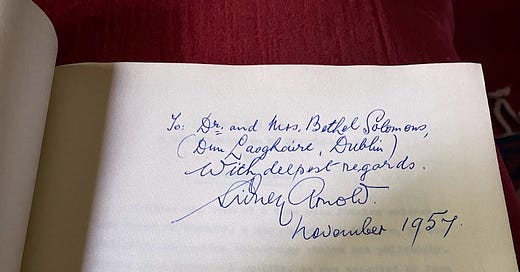 To: Dr. and Mrs. Bethel Solomons,
(Dun Laoghaire, Dublin)
With deepest regards.
Sidney Arnold.
November 1957.